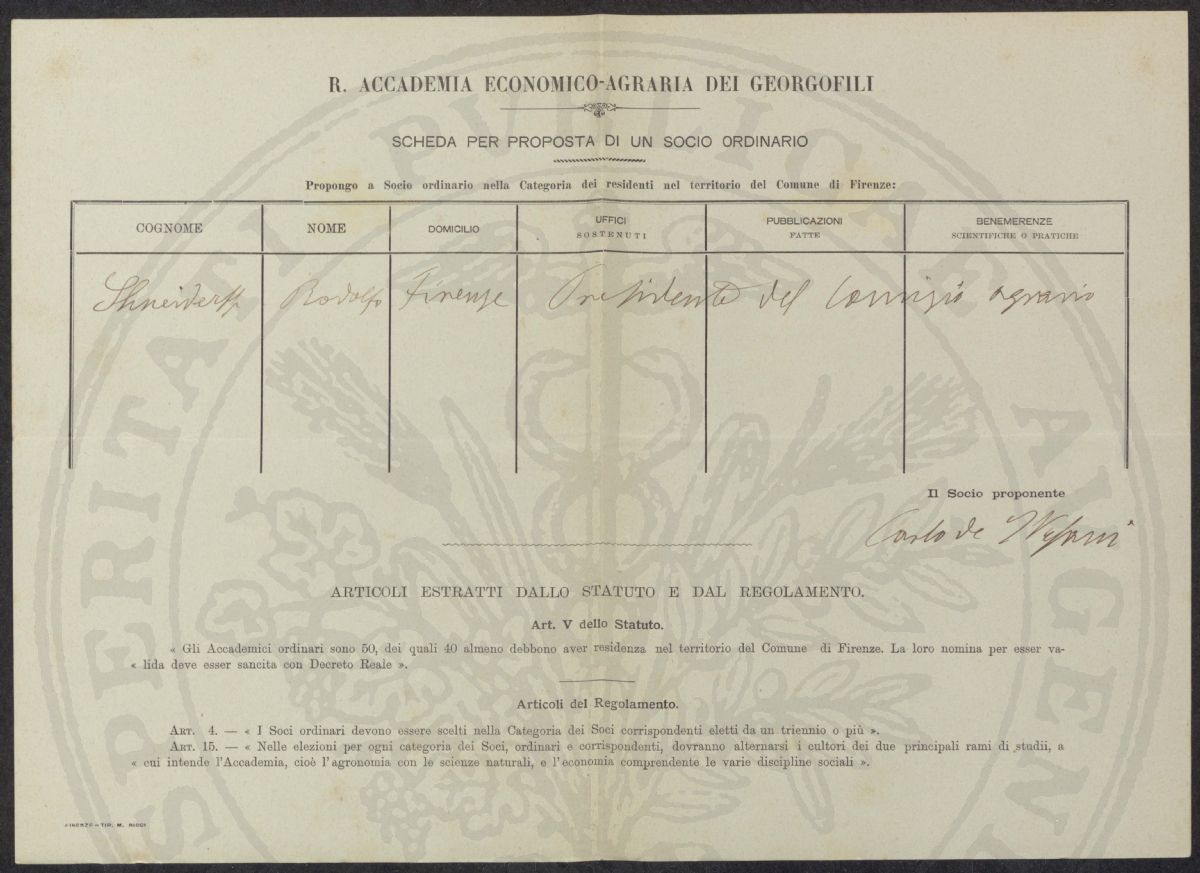 R. ACCADEMIA ECONOMICO-AGRARIA DEI GEORGOFILI
SCHEDA PER PROPOSTA DI UN SOCIO ORDINARIO
Propongo a Socio ordinario nella Categoria dei residenti nel territorio del Comune di Firenze:
COGNOME NOME DOMICILIO UFFICI SOSTENUTI PUBBLICAZIONI FATTE BENEMERENZE SCIENTIFICHE O PRATICHE
Rodolfo Firenze Presidente del Comizio agrario
Il Socio proponente
Carlo de
ARTICOLI ESTRATTI DALLO STATUTO E DAL REGOLAMENTO.
Art. V dello Statuto.
« Gli Accademici ordinari sono 50, dei quali 40 almeno debbono aver residenza nel territorio del Comune di Firenze. La loro nomina per esser va-
« lida deve esser sancita con Decreto Reale ».
Articoli del Regolamento.
ART. 4. — « I Soci ordinari devono essere scelti nella Categoria dei Soci corrispondenti eletti da un triennio o più ».
ART. 15. — « Nelle elezioni per ogni categoria dei Soci, ordinari e corrispondenti, dovranno alternarsi i cultori dei due principali rami di studii, a
« cui intende l'Accademia, cioè l'agronomia con le scienze naturali, e l'economia comprendente le varie discipline sociali ».
FIRENZE—TIP. M. RICCI
PROSPERITATI PUBLICAE AUGENDAE